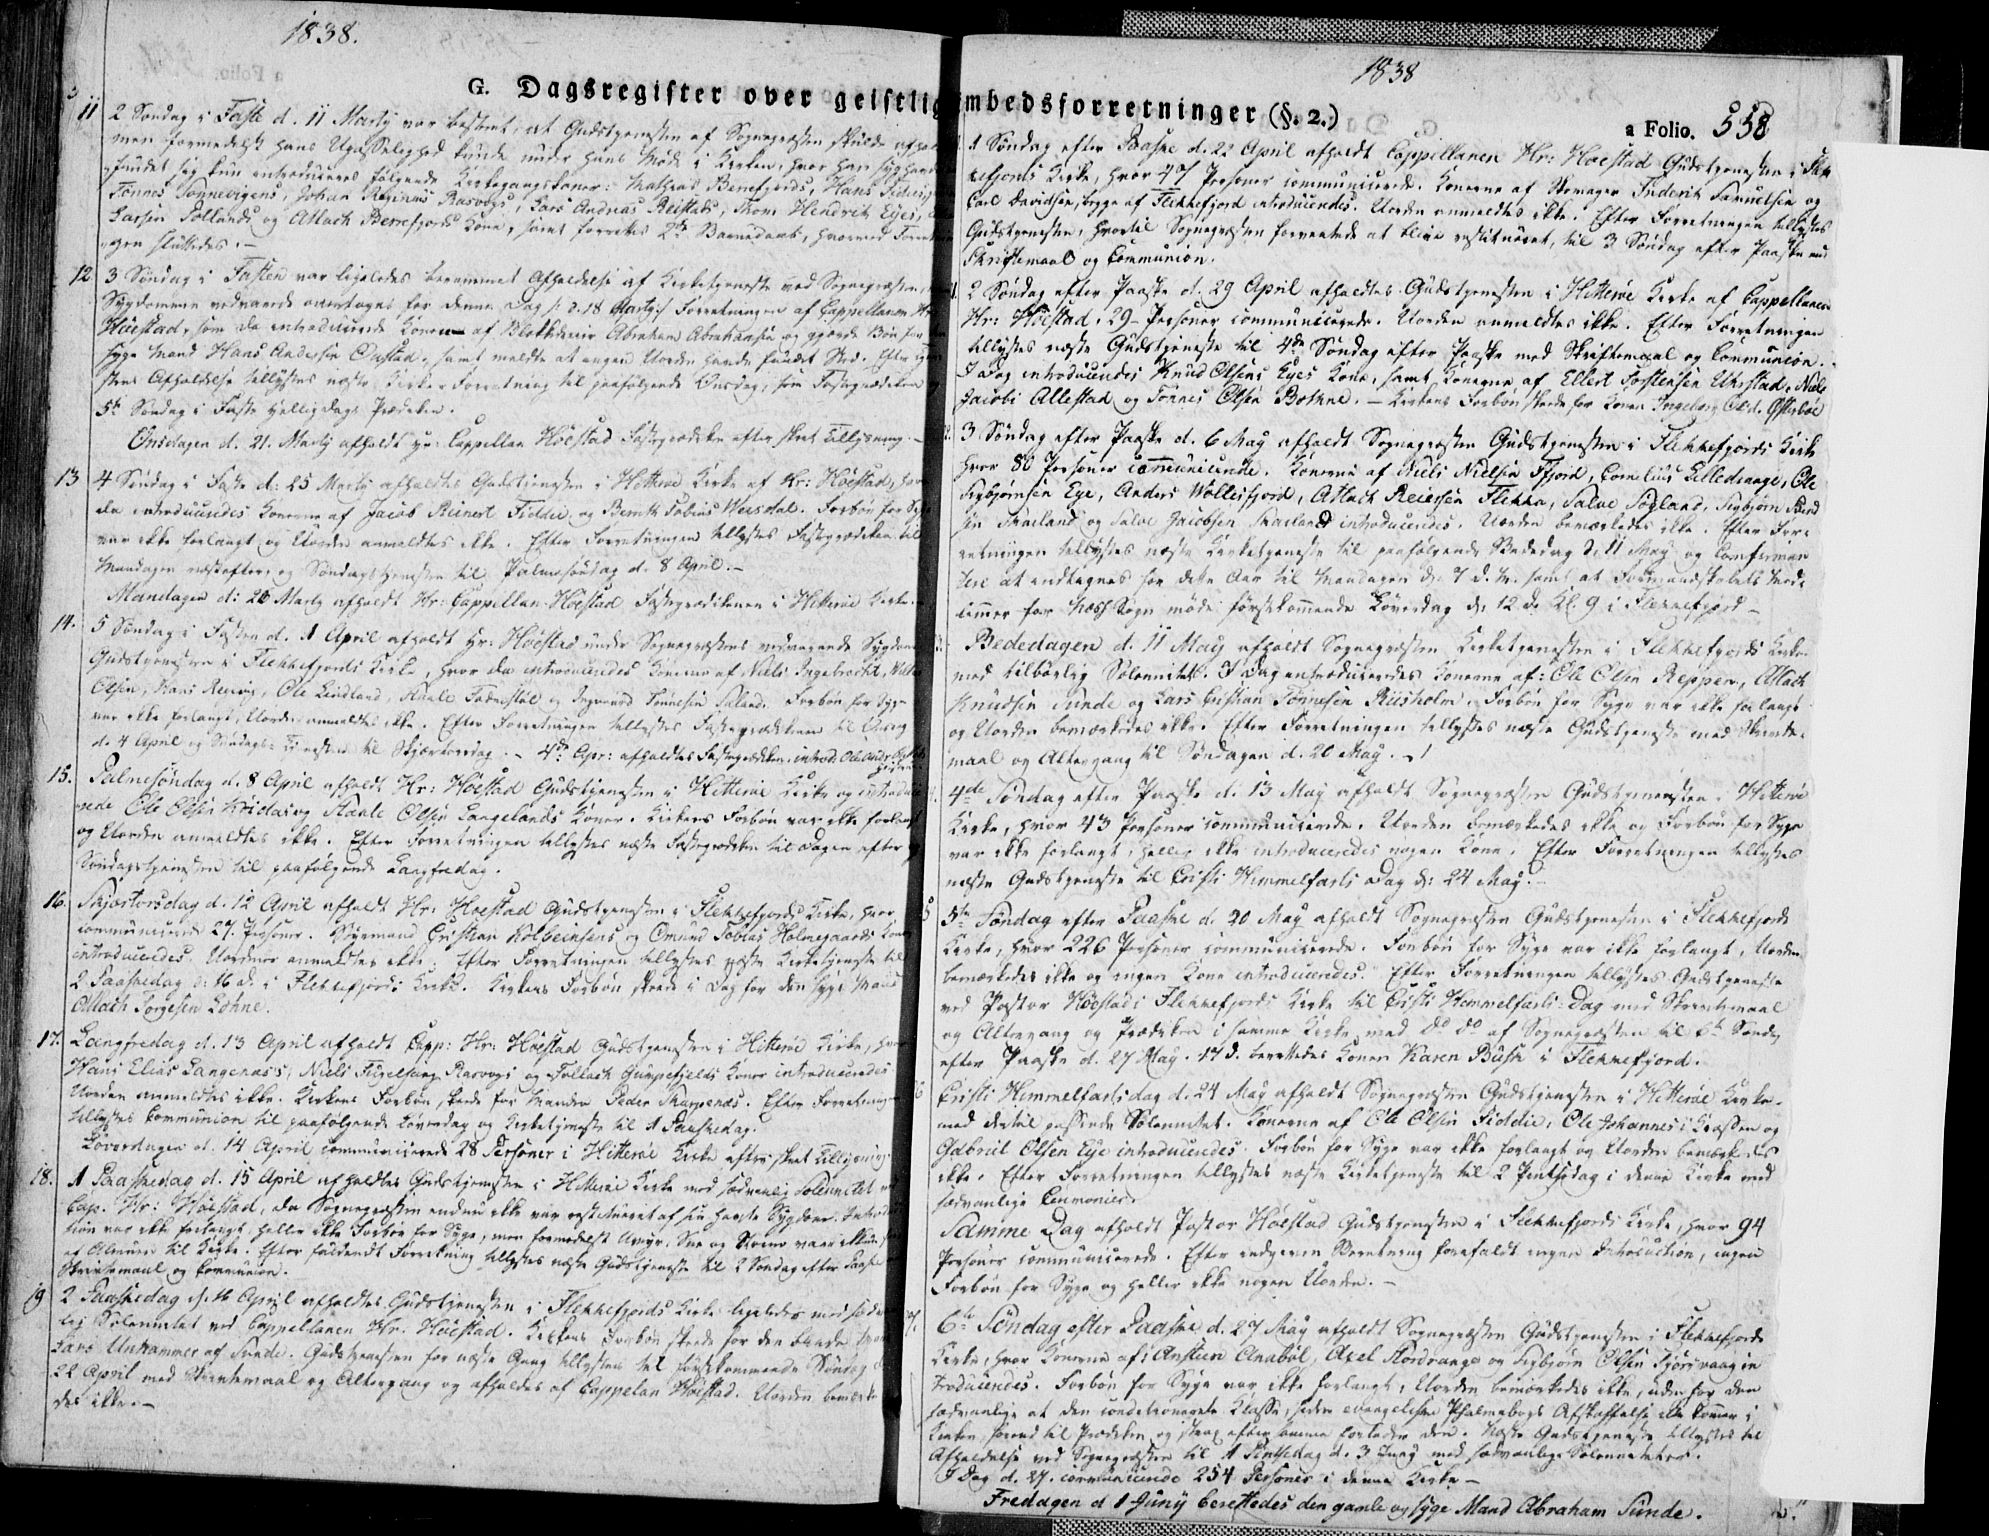 1838.
G. Dagsregister over geistlig
11 2 Søndag i Faste d. 11 Marty var bestemt, at Gudstjenesten af Sognepræsten skulde afhol
men formedelst hans Upasselighed kunde under hans Møde i Kirken, hvor han syg
fundet sig kun introduceres følgende Kirkegangskoner: Mathias Berrefjords, Hans
Tønnes Tonnevigens, Johan Reginius Rasvogs, Lars Andreas Reistads, Thom Hendrik Eyes,
Larsen Sollands og Atlach Berrefjords Kone, samt forrettes 2de Barnedaab, hvormed Forret
gen sluttedes. –
12 3 Søndag i Fasten var ligeledes berammet Afholdelse af Kirketjeneste ved Sognepræsten,
Sygdommen vedvarende overtoges for denne Dag d. 18 Marty Forretningen af Cappellanen Hr:
Höestad, som da introducerede Konen af Blokkdreier Abraham Abrahamsen og gjorde Bøn for
syge Mand Hans Andersen Östad, samt meldte at ingen Uorden havde fundet Sted. Efter
sten Afholdelse tillystes næste Kirke Forretning til paafølgende Onsdag, som Fasteprædiken og
5te Søndag i Faste helligdags Prædiken.
Onsdagen d. 21. Marty afholdt Hr: Cappellan Höestad Fasteprædiken efter skeet Tillysning. –
13 4 Søndag i Faste d: 25 Marty afholdtes Gudstjenesten i Hitterøe Kirke af Hr: Höestad, hvor
da introducerdes Konerne af Jacob Reinert Fidde og Bernt Tobias Weisdal. Forbøn for Syge
var ikke forlangt og Uorden anmeldtes ikke. Efter Forretningen tillystes Fasteprædiken til
Mandagen næstefter, og Søndagstjenesten til Palmesöndag d. 8 April. –
Mandagen d: 26 Marty afholdt Hr: Cappellan Höestad Fasteprædikenen i Hitterøe Kirke.
14. 5 Søndag i Fasten d. 1 April afholdt Hr: Höestad under Sognepræstens vedvarende Sygdom
Gudstjenesten i Flekkefjords Kirke, hvor da introducerdes Konerne af Niels Ingebretsen,
Olsen, Hans Reinig, Ole Lindland, Staale Fadnestøl og Ingvard Tønnesen Aaland. Forbøn for Syge
var ikke forlangt, Uorden anmeldtes ikke. Efter Forretningen tillystes Fasteprædikenen til Onsdag
d. 4 April og Søndags-Tjenesten til Skjærtorsdag. – 4de Apr: afholdtes Fasteprædiken, introd:
15. Palmesöndag d. 8 April afholdt Hr: Höestad Gudstjenesten i Hitterøe Kirke og introduce
rede Ole Olsen Kvidas og Staale Olsen Langelands Koner. Kirkens Forbøn var ikke forlangt
og Uorden anmeldtes ikke. Efter Forretningen tillystes næste Fasteprædiken til Dagen efter og
Søndagstjenesten til paafølgende Langfredag.
16. Skjærtorsdag d. 12 April afholdt Hr: Höestad Gudstjenesten i Flekkefjords Kirke, hvor
communicerede 27. Personer. Styrmand Cristian Kolbeinsens og Omund Tobias Holmegaards Koner
introducerdes. Uordner anmeldtes ikke. Efter Forretningen tillystes næste Kirketjeneste til
2 Paaskedag d: 16 d. i Flekkefjords Kirke. Kirkens Forbøn skeede i Dag for den syge Mand
Atlach Torgesen Lohne.
17. Langfredag d. 13 April afholdt Capp: Hr: Höestad Gudstjenesten i Hitterøe Kirke, hvor
Hans Elias Langenæs's, Niels Rasvogs og Tollach Gumpefjelds Koner introducerdes
Uorden anmeldtes ikke. Kirkens Forbøn skeede for Manden Peder Skarpenæs. Efter Forretningen
tillystes Communion til paafølgende Løverdag og Kirketjeneste til 1 Paaskedag.
Löverdagen d. 14 April communicerede 28 Personer i Hitterøe Kirke efter skeet Tillysning.
18. 1 Paaskedag d. 15 April afholdtes Gudstjenesten i Hitterøe Kirke med sædvanlig Solennitet ved
Cap. Hr: Höestad, da Sognepræsten endnu ikke var restitueret af sin haarde Sygdom. Introduc
tion var ikke forlangt, heller ikke Forbøn for Syge, men formedelst Uveyr, Sne og Storm
af Almuen til Kirke. Efter fuldendt Forretning tillystes næste Gudstjeneste til 2 Søndag efter Paaske
Skriftemaal og Communion.
19 2 Paaskedag d. 16 April afholdtes Gudstjenesten i Flekkefjords Kirke ligeledes med sædvan
lig Solennitet ved Cappellanen Hr. Höestad. Kirkens Forbøn skeede for den
Lars Unhammer af Sunde. Gudstjenesten for næste Gang tillystes til førstkommende Søndag d
22 April med Skriftemaal og Altergang og afholdes af Cappelan Höestad. Uorden bemærke
des ikke. –
1838
embedsforretninger (§. 2.)
a Folio. 558
1 Søndag efter Paaske d. 22 April afholdt Cappellanen Hr: Hoestad Gudstjenesten i Flek
kefjords Kirke, hvor 47 Personer communicerede. Konerne af Skomager Frederik Samuelsen og
Carl Davidsen, begge af Flekkefjord introducerdes. Uorden anmeldtes ikke. Efter Forretningen tillystes
Gudstjenesten, hvortil Sognepræsten forventede at blive restitueret, til 3 Søndag efter Paaske med
Skriftemaal og Communion.
2 Søndag efter Paaske d. 29 April afholdtes Gudstjenesten i Hitterøe Kirke af Cappellanen
Hr: Höestad. 29 Personer communicerede. Uorden anmeldtes ikke. Efter Forretningen
tillystes næste Gudstjeneste til 4de Søndag efter Paaske med Skriftemaal og Communion.
I Dag introducerdes Knud Olsens Eyes Kone, samt Konerne af Ellert Torstensen Uhrstad, Niels
Jacobs Allestad og Tønnes Olsen Bothne. – Kirkens Forbøn skeede for Konen Ingeborg Olsd. Østebøe
3 Søndag efter Paaske d. 6 May afholdt Sognepræsten Gudstjenesten i Flekkefjords Kirke
hvor 80 Personer communicerede. Konerne af Niels Nielsen Fjord, Cornelius Lilledrange, Ole
Sigbjørnsen Eye, Anders Wollesfjord, Atlach Reiersen Flikka, Salve Fogland, Sigbjørn
sen Skailand og Salve Jacobsen Skailand introducerdes. Uorden bemærkedes ikke. Efter For-
retningen tillystes næste Kirketjeneste til paafølgende Bededag d. 11 May og Confirman
dere at antegnes for dette Aar til Mandagen d. 7 d. M. samt at Formandskabets Med-
lemmer for Næss Sogn møde førstkommende Løverdag d. 12 d. Kl. 9 i Flekkefjord –
Bededagen d. 11 May afholdt Sognepræsten Kirketjenesten i Flekkefjords Kirke
med tilbørlig Solennitet. I Dag introducerdes Konerne af: Ole Olsen Reppen, Atlach
Knudsen Sunde og Lars Cristian Tønnesen Riisholm. Forbøn for Syge var ikke forlangt
og Uorden bemærkedes ikke. Efter Forretningen tillystes næste Gudstjeneste med Skrifte-
maal og Altergang til Søndagen d. 20 May. –
4de Søndag efter Paaske d. 13 May afholdt Sognepræsten Gudstjenesten i Hitterøe
Kirke, hvor 43 Personer communicerede. Uorden bemærkedes ikke og Forbøn for Syge
var ikke forlangt, heller ikke introduceredes nogen Kone. Efter Forretningen tillystes
næste Gudstjeneste til Cristi Himmelfarts Dag d: 24 May. –
5te Søndag efter Paaske d. 20 May afholdt Sognepræsten Gudstjenesten i Flekkefjords
Kirke, hvor 226 Personer communicerede. Forbøn for Syge var ikke forlangt, Uorden
bemærkedes ikke og ingen Kone introduceredes. Efter Forretningen tillystes Gudstjeneste
ved Pastor Höestad i Flekkefjords Kirke til Cristi Himmelfarts-Dag med Skriftemaal
og Altergang og Prædiken i samme Kirke med Do Do af Sognepræsten til 6te Søndag
efter Paaske d. 27 May. 17 d. berettedes Konen Karen Bush i Flekkefjord.
Cristi Himmelfartsdag d. 24 May afholdt Sognepræsten Gudstjenesten i Hitterøe Kirke
med dertil passende Solennitet. Konerne af Ole Olsen Fidde, Ole Johannes Krassen og
Gabriel Olsen Eye introducerdes. Forbøn for Syge var ikke forlangt og Uorden bemærkedes
ikke. Efter Forretningen tillystes næste Kirketjeneste til 2 Pentsedag i denne Kirke med
sædvanlige Ceremonier.
Samme Dag afholdt Pastor Höestad Gudstjenesten i Flekkefjords Kirke, hvor 94
Personer communicerede. Efter indgiven Beretning forefaldt ingen Introduction, ingen
Forbøn for Syge og heller ikke nogen Uorden. –
6te Søndag efter Paaske d. 27 May afholdt Sognepræsten Gudstjenesten i Flekkefjords
Kirke, hvor Konerne af: Anstien Anabøl, Axel Nordvange og Sigbjørn Olsen Fjørsvaag in
troducerdes. Forbøn for Syge var ikke forlangt, Uorden bemærkedes ikke, uden for den
sædvanlige at den conditionerede Klasse, siden evangeliske Psalmebogs Afskaffelse ikke kommer i
Kirken forend til Prædiken, og strax efter samme forlader den. Næste Gudstjeneste tillystes til
Afholdelse ved Sognepræsten til 1 Pentsedag d. 3 Juny med sædvanlige Solenniteter.
I Dag d. 27. communicerede 254 Personer i denne Kirke –
Fredagen d 1 Juny berettedes den gamle og syge Mand Abraham Sunde.